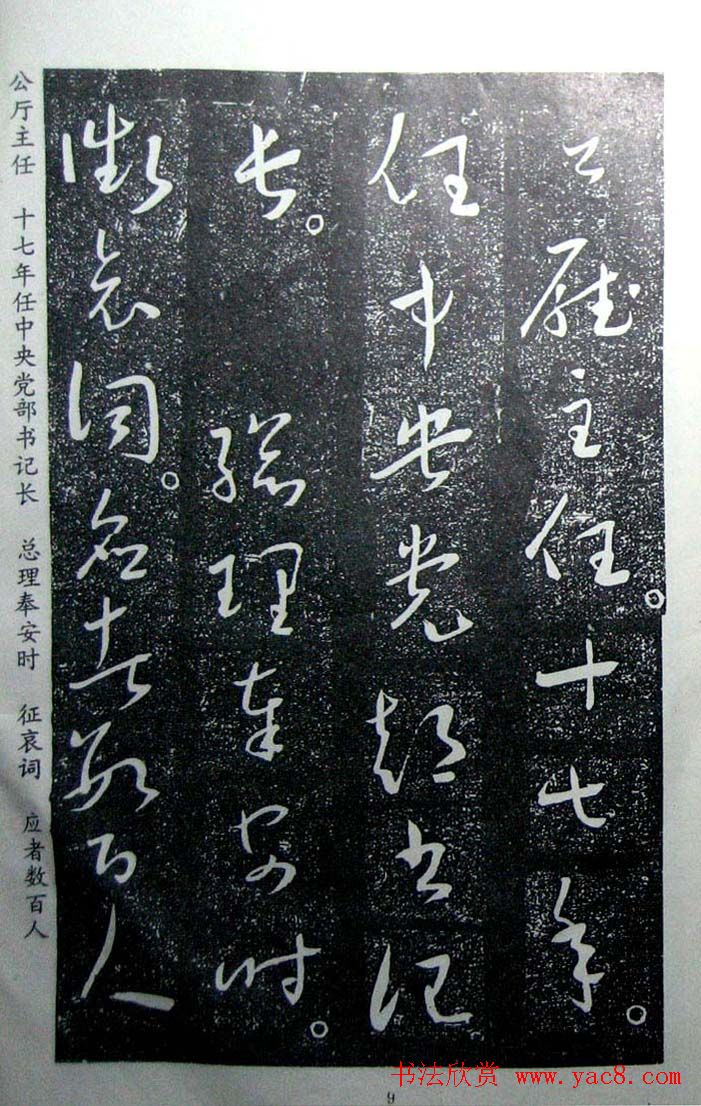 公廳主任。十七年。
任中央党部书记
长。總理奉安時。
徵哀詞。应者数百人
公厅主任 十七年任中央党部书记长 总理奉安时 征哀词 应者数百人
9
书法欣赏 www.yac8.com